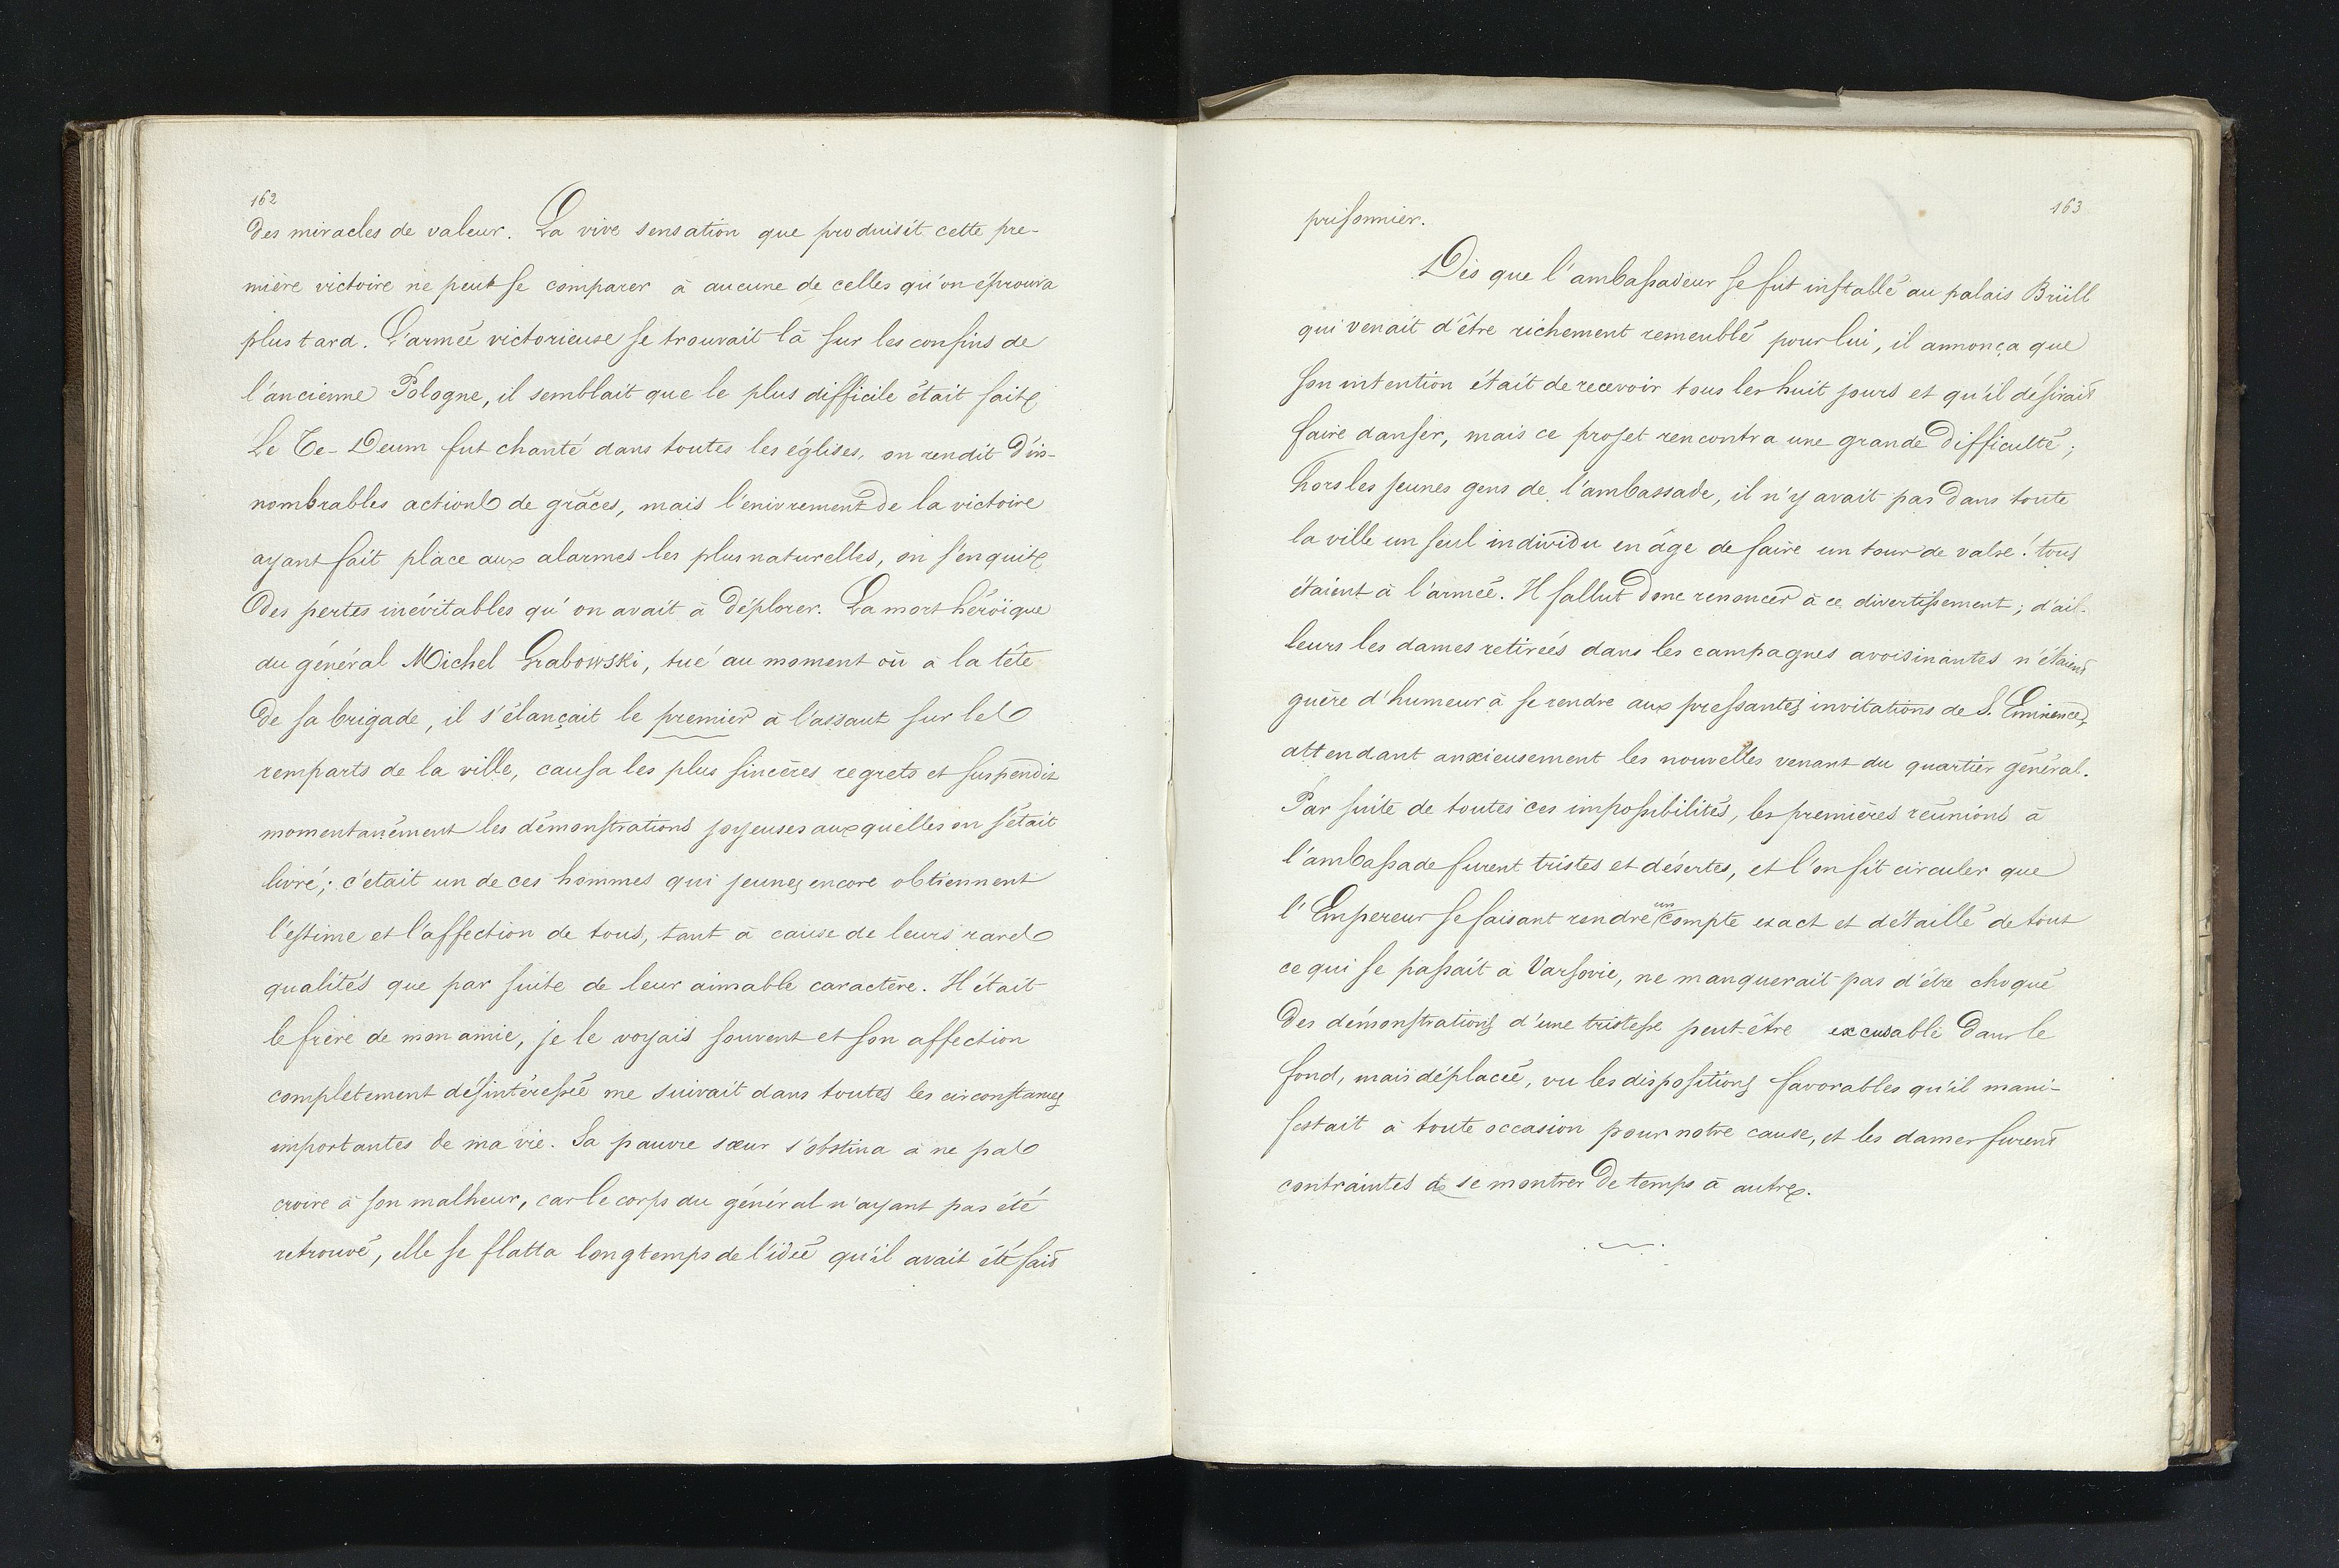 162
des miracles de valeur. La vive sensation que produisit cette pre-
mière victoire ne peut se comparer à aucune de celles qu'on éprouva
plus tard. L'armée victorieuse se trouvait là sur les confins de
l'ancienne Pologne, il semblait que le plus difficile était fait,
Le Te-Deum fut chanté dans toutes les églises, on rendit d'in-
nombrables actions de grâces, mais l'enivrement de la victoire
ayant fait place aux alarmes les plus naturelles, on s'enquit
des pertes inévitables qu'on avait à déplorer. La mort héroïque
du général Michel Grabowski, tué au moment où à la tête
de sa brigade, il s'élançait le premier à l'assaut sur les
remparts de la ville, causa les plus sincères regrets et suspendit
momentanément les démonstrations joyeuses auxquelles on s'était
livré; c'était un de ces hommes qui jeunes encore obtiennent
l'estime et l'affection de tous, tant à cause de leurs rares
qualités que par suite de leur aimable caractère. Il était
le frère de mon amie, je le voyais souvent et son affection
completement désintéressée me suivait dans toutes les circonstances
importantes de ma vie. Sa pauvre sœur s'obstina à ne pas
croire à son malheur, car le corps du général n'ayant pas été
retrouvé, elle se flatta longtemps de l'idée qu'il avait été fait
163
prisonnier.
Dès que l'ambassadeur se fut installé au palais Brüll
qui venait d'être richement remeublé pour lui, il annonça que
son intention était de recevoir tous les huit jours et qu'il désirait
faire danser, mais ce projet rencontra une grande difficulté;
hors les jeunes gens de l'ambassade, il n'y avait pas dans toute
la ville un seul individu en âge de faire un tour de valse! tous
étaient à l'armée. Il fallut donc renoncer à ce divertissement; d'ail-
leurs les dames retirées dans les campagnes avoisinantes n'étaient
guère d'humeur à se rendre aux pressantes invitations de S. Eminence,
attendant anxieusement les nouvelles venant du quartier général.
Par suite de toutes ces impossibilités, les premières réunions à
l'ambassade furent tristes et désertes, et l'on fit circuler que
l'Empereur se faisant rendre un compte exact et détaillé de tout
ce qui se passait à Varsovie, ne manquerait pas d'être choqué
des démonstrations d'une tristesse peut-être excusable dans le
fond, mais déplacée, vu les dispositions favorables qu'il mani-
festait à toute occasion pour notre cause, et les dames furent
contraintes de se montrer de temps à autre.